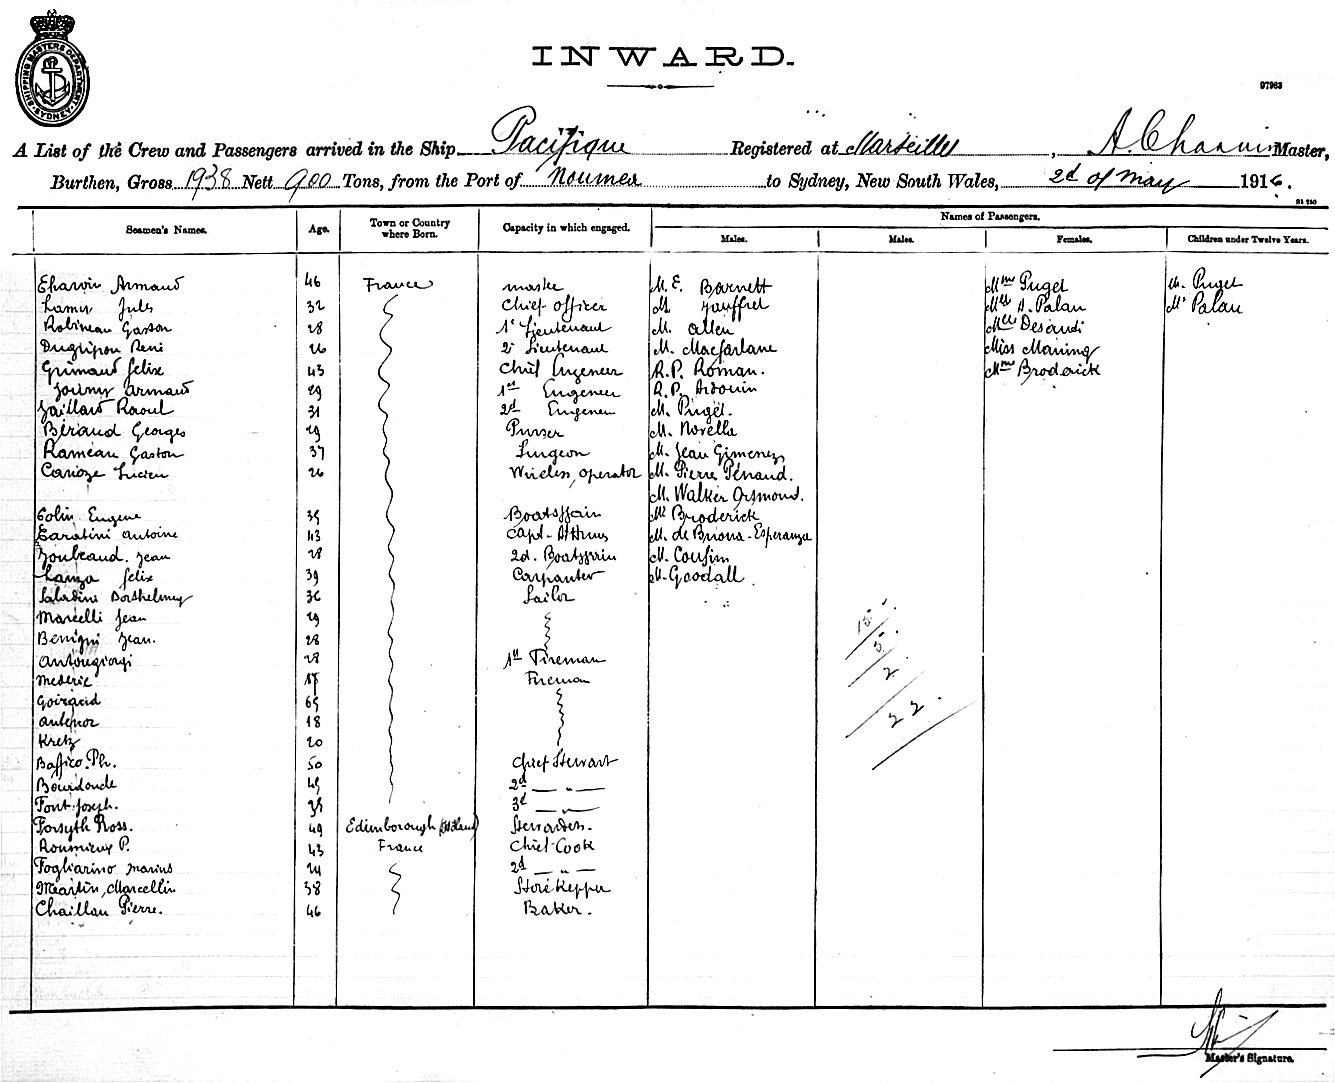 SHIPPING MASTERS DEPARTMENT SYDNEY
INWARD.
97963
A List of the Crew and Passengers arrived in the Ship Pacifique Registered at Marseille, A. Charvin Master,
Burthen, Gross 1938 Nett 900 Tons, from the Port of Noumea to Sydney, New South Wales, 2d of May 1916.
Seamen's Names. Age. Town or Country where Born. Capacity in which engaged. Names of Passengers.
Males. Males. Females. Children under Twelve Years.
Charvin Armand 46 France master M. E. Barnett Mme Puget M. Puget
Jules 32 Chief Officer M. Jauffret Mlle A. Palau Mr Palau
Robineau Gaston 28 1r Lieutenant M. Allen Mlle
René 26 2d Lieutenant M. Macfarlane Miss Maning
Grimaud felix 43 Chief Engeneer R.P. Roman. Mme Broderick
armand 29 1st Engeneer R.P. Ardouin
Gaillard Raoul 31 2d Engeneer M. Puget.
Béraud Georges 29 Purser M. Novella
Rameau Gaston 37 Surgeon M. Jean Gimenez
Lucien 26 Wireless operator M. Pierre Pénaud.
M. Walker Ormond.
Colin Eugene 35 Boatsfain Mr Broderick
antoine 43 Capt. Athms M. de Briona-Esperanza
Joubeaud Jean 28 2d. Boatsfain M. Coufim
Lanza felix 39 Carpanter M. Goodall
Saladini Barthelemy 36 Sailor
Marcelli Jean 29
Benigni Jean. 28
Antongiorgi 28 1st Fireman
Mederic Fireman
65
Antenor 18
Kretz 20
Baffico. Ph. 50 Chief Stewart
45 2d — „ —
Font Joseph. 3d — „ —
Forsyth Ross. 49 Edimborough
Roumieux P. 43 France Chief-Cook
Fogliarino marius 24 2d — „ —
Martin, Marcellin 38 Storekepper
Chaillan Pierre. 46 Baker.
15
5
2
22.
Master's Signature.